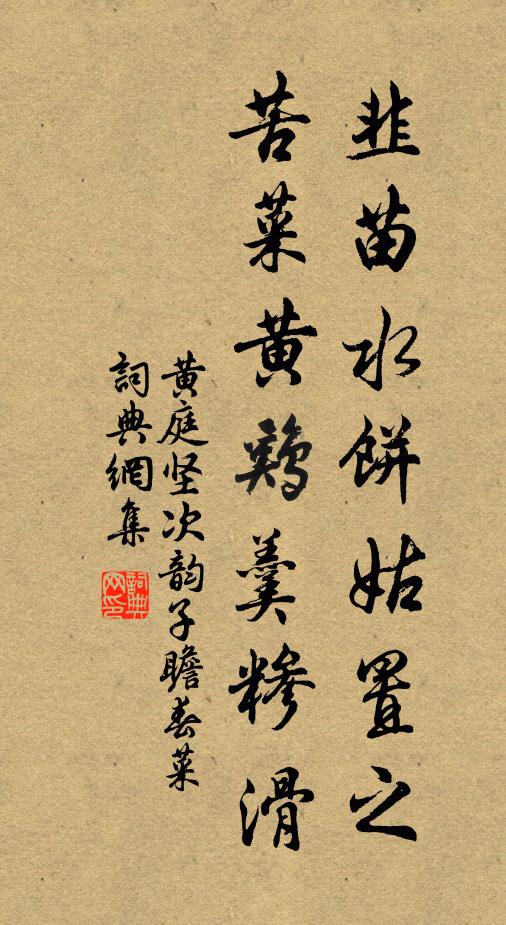 韭苗水餅姑置之
苦菜黄鷄羹糝滑
黄庭坚次韵子瞻春菜
詞典網集
詞典网印